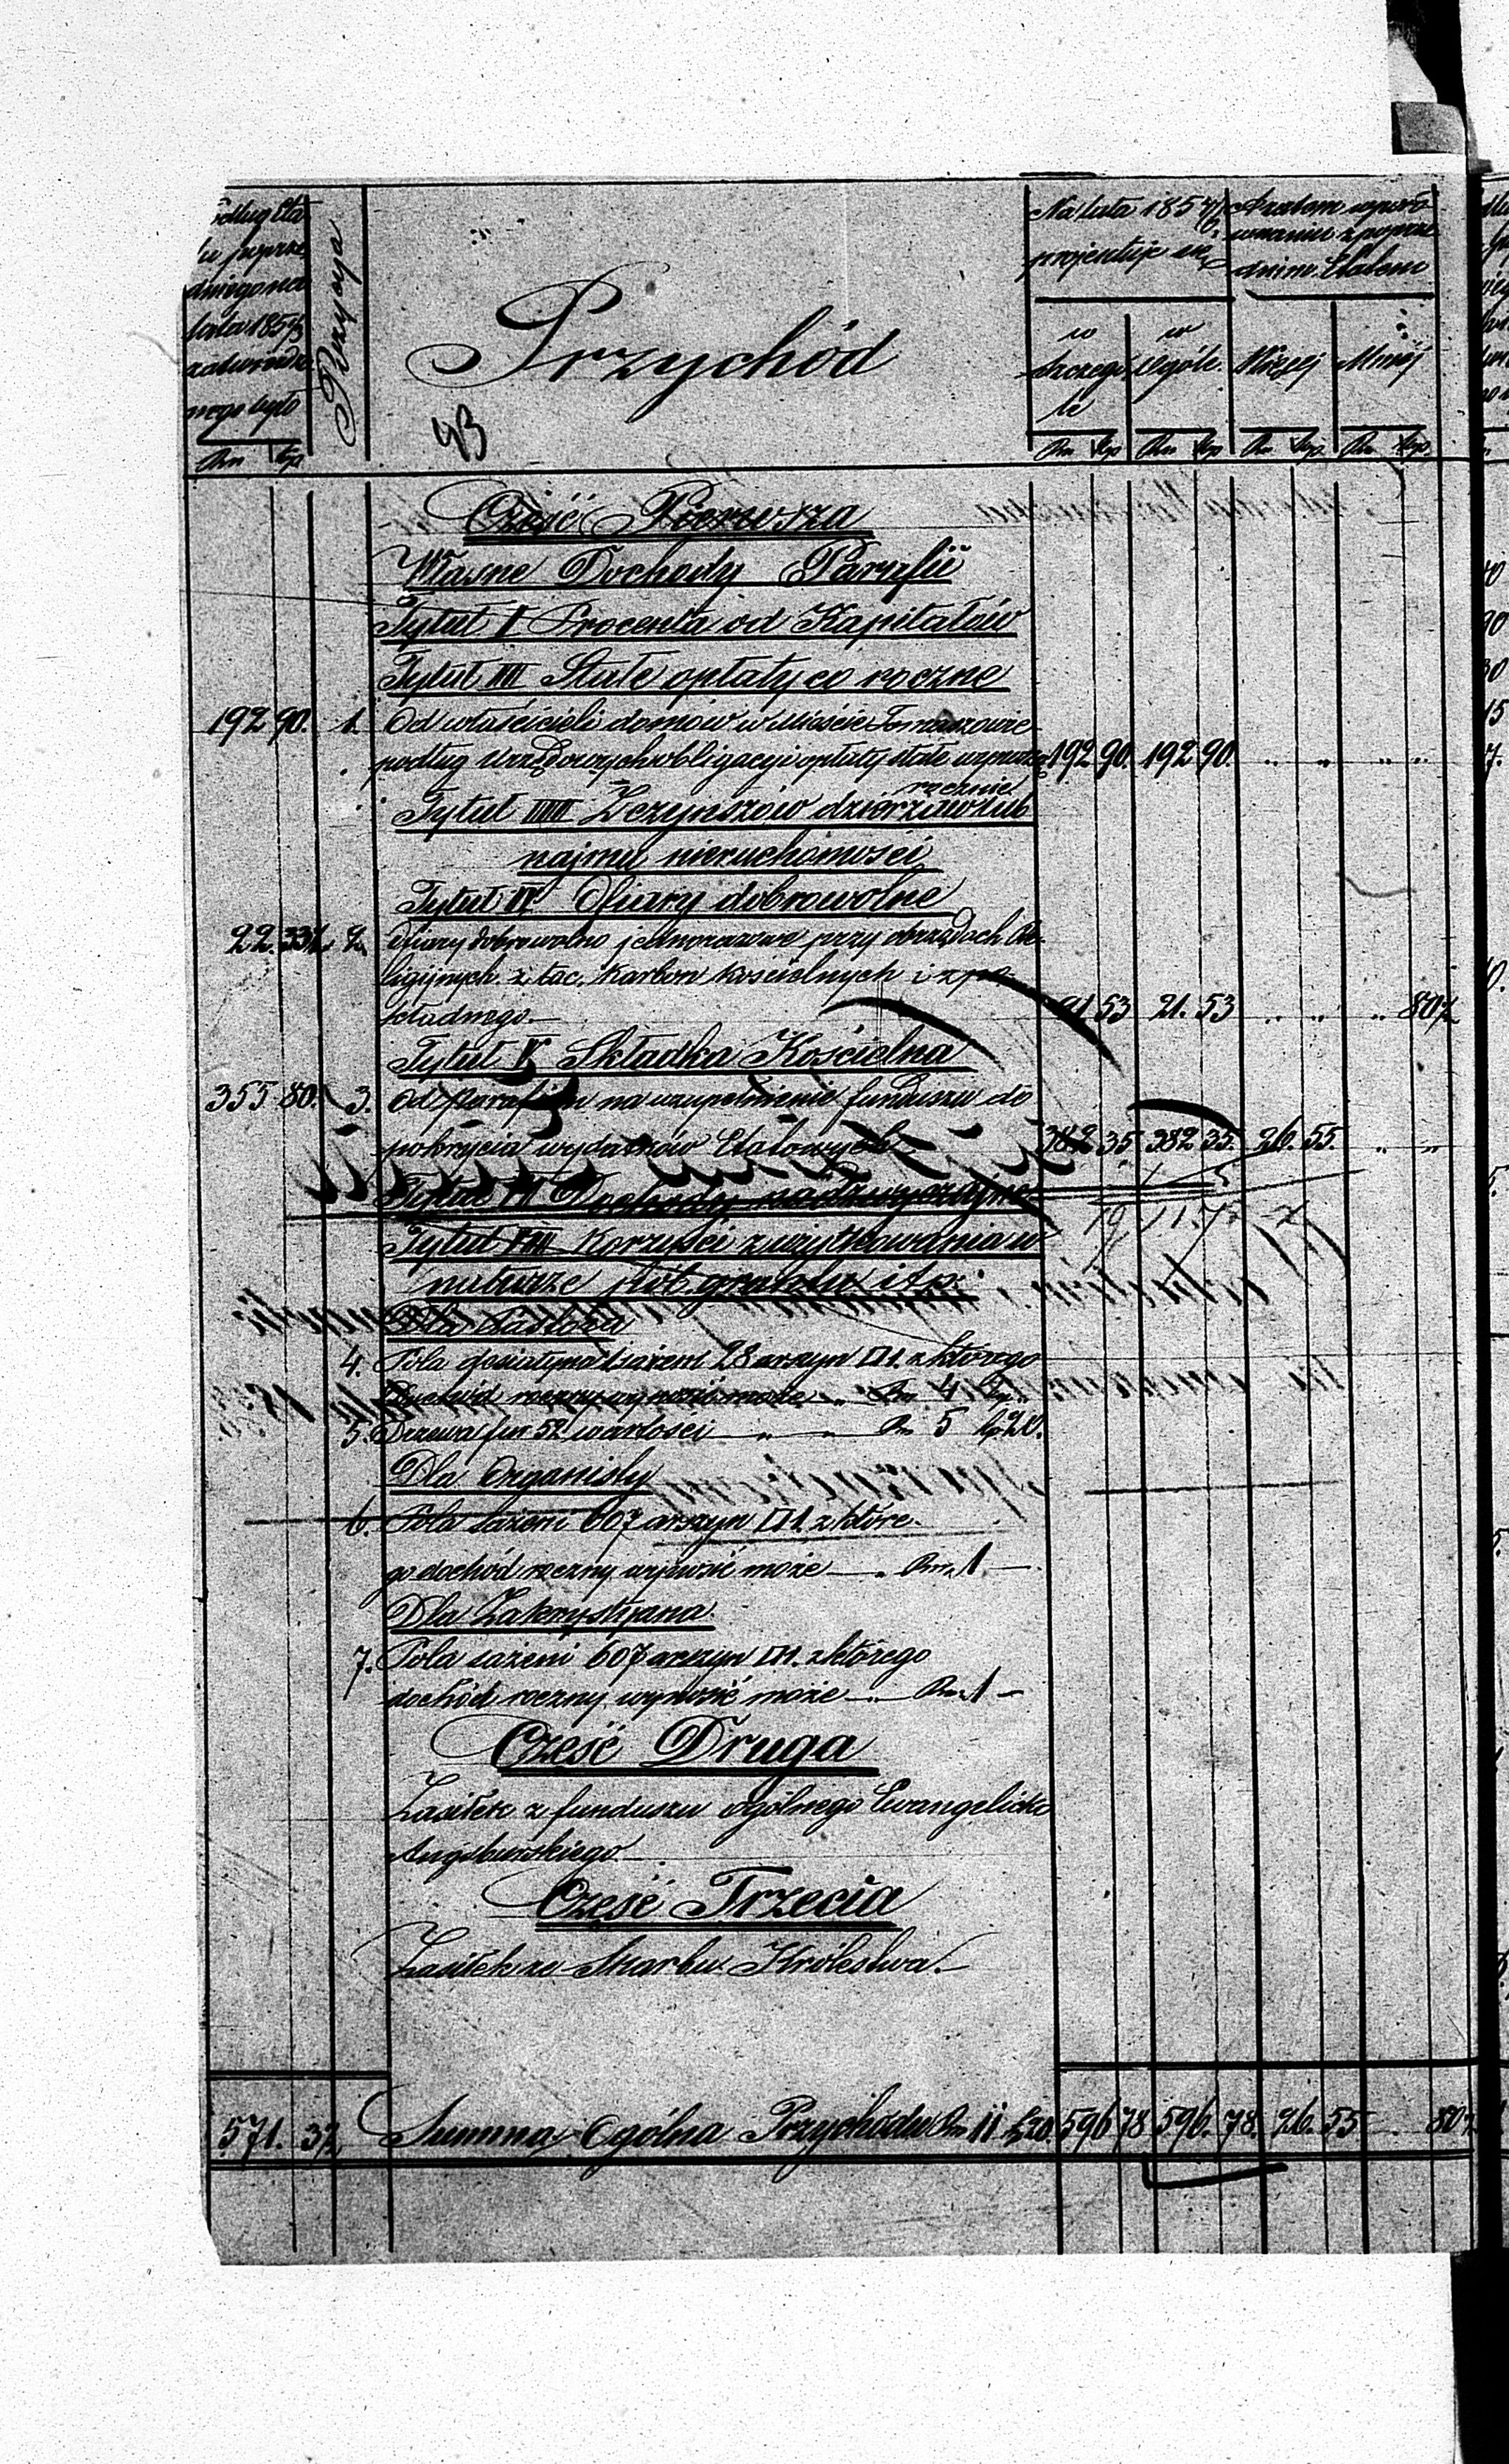 Podług Eta
tu poprze
dniego na
lata 185
zatwierdzo
nego było
Rsr kop
Pozycya
Przychód
43
Na lata 185
projektuje się
w
szczegó
le
w
ogóle
A zatem w poró
wnaniu z poprze
dnim Etatem
Więcej
Mniej
Rsr kop Rsr kop Rsr kop Rsr kop
Część Pierwsza
Własne Dochody Parafii
Tytuł I Procenta od Kapitałów
Tytuł III Stałe opłaty co roczne
192 90. 1. Od właścicieli domów w Mieście Tomaszowie
podług urzędowych obligacyi opłaty stałe 192 90. 192 90. „ „ „ „
rocznie
Tytuł IIII Z czynszów dzierzaw lub
najmu nieruchomości
Tytuł IV Ofiary dobrowolne
22. 33½ 2. Ofiary dobrowolne jednorazowe przy obrzędach Re-
ligijnych z tac, karbon kościelnych i z po
kładnego.— 21 53 21. 53 „ „ „ 80½
Tytuł V Składka Kościelna
355 80. 3. Od Parafijan na uzupełnienie funduszu do
pokrycia wydatków Etatowych 382 35 382 35. 26. 55. „ „
Tytuł VI Dochody nadzwyczajne
Tytuł VIII Korzyści z użytkowania w
naturze pól gruntu itp.
Dla Pastora
4. Pola dosiatyna 1 sążeni 28 arszyn □ 1. z którego
dochód roczny wynosić może „ Rsr 4 kop „
5. Drzewa fur 52 wartości „ „ Rsr 5 kp 20.
Dla Organisty
6. Pola sążeni 607 arszyn □ 1. z które-
go dochód roczny wynosić może —„ Rsr. 1 —
Dla Zakrystyana.
7. Pola sążeni 607 arszyn □ 1. z którego
dochód roczny wynosić może —„— Rsr. 1 —
Część Druga
Zasiłek z funduszu ogólnego Ewangelicko
Augsburskiego.
Część Trzecia
Zasiłek ze Skarbu Królestwa.—
571. 3½ Summa Ogólna Przychodu Rsr 11 k 20. 596 78 596. 78. 26. 55 80½